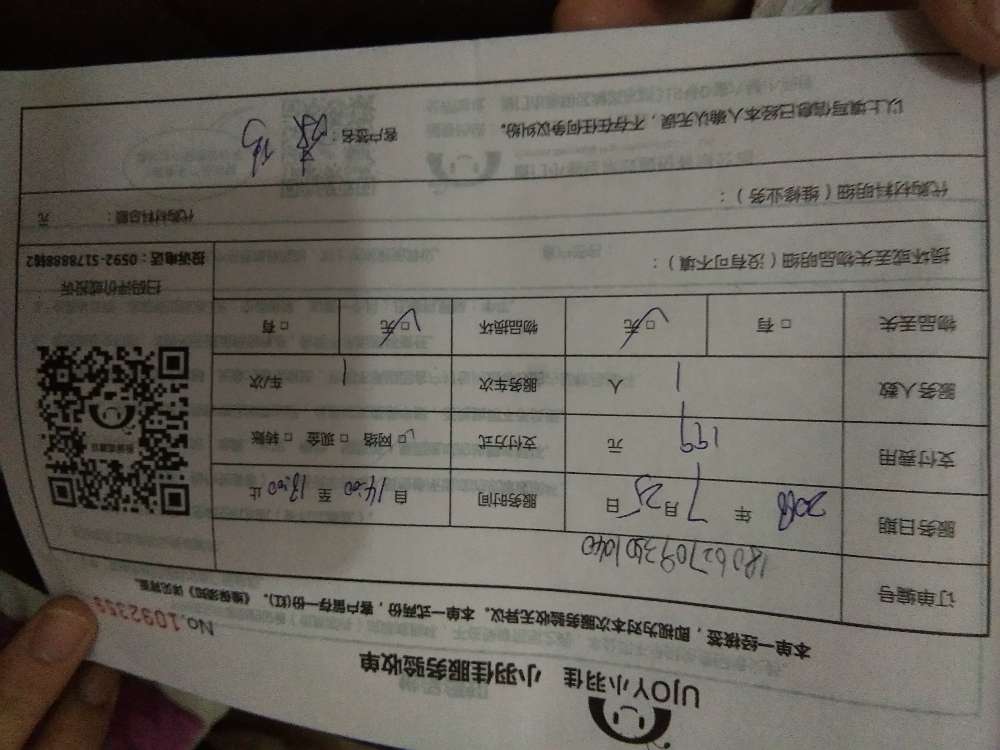 UJOY小羽佳 小羽佳服务验收单
No.1092359
本单一经接签，即视为对本次服务验收无异议。本单一式两份，客户留存一份(红)。《维保须知》详见背面。
订单编号 180627093501040
服务日期 2018 年 7 月 25 日 服务时间 自 14:00 至 18:00 止
支付费用 199 元 支付方式 □ 网络 □ 现金 □ 转账
服务人数 1 人 服务车次 1 车次
物品丢失 □ 有 □ 无 物品损坏 □ 无 □ 有
扫码评价或投诉
投诉电话：0592-5178888转2
损坏或丢失物品明细（没有可不填）：
代购材料明细（维修业务）： 代购材料总额： 元
以上填写信息已经本人确认无误，不存在任何争议纠纷。 客户签名：